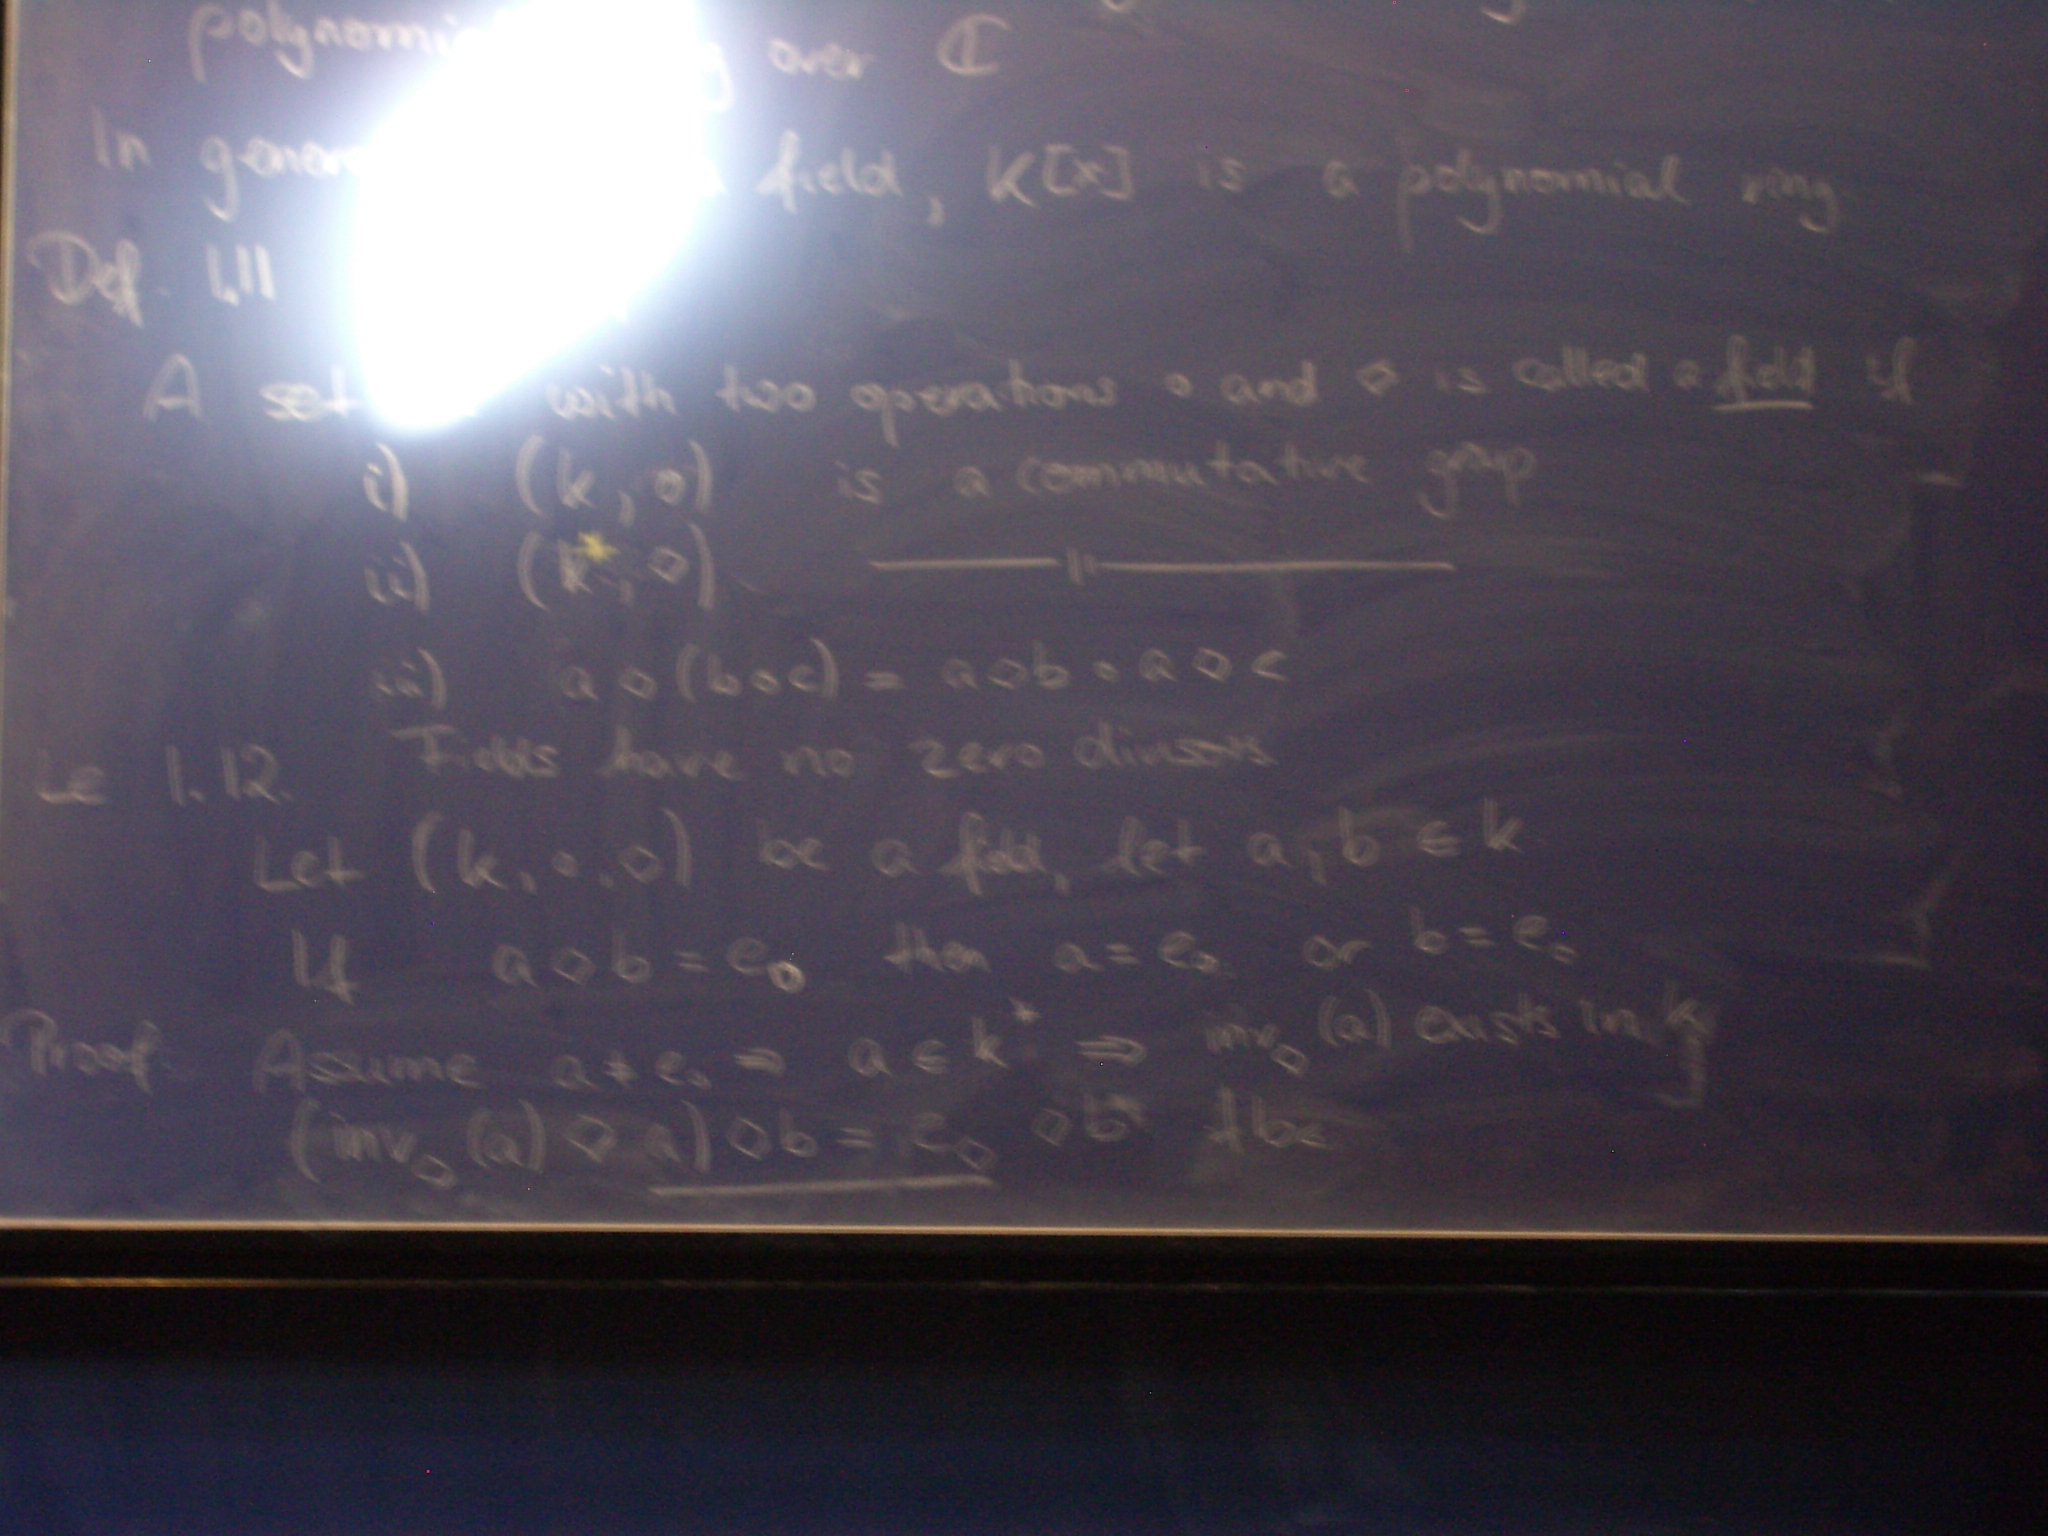 over ℂ
In field, K[x] is a polynomial ring
Def. 1.11
A set with two operations ∘ and ⋄ is called a field if
i) (k, ∘) is a commutative group
ii) (k*, ⋄) —— 〃 ——
iii) a ⋄ (b ∘ c) = a ⋄ b ∘ a ⋄ c
Le 1.12. Fields have no zero divisors
Let (k, ∘, ⋄) be a field, let a, b ∈ k
If a ⋄ b = e∘ then a = e∘ or b = e∘
Proof: Assume a ≠ e∘ ⇒ a ∈ k* ⇒ inv⋄ (a) exists in k
(inv⋄ (a) ⋄ a) ⋄ b = e⋄ ⋄ b